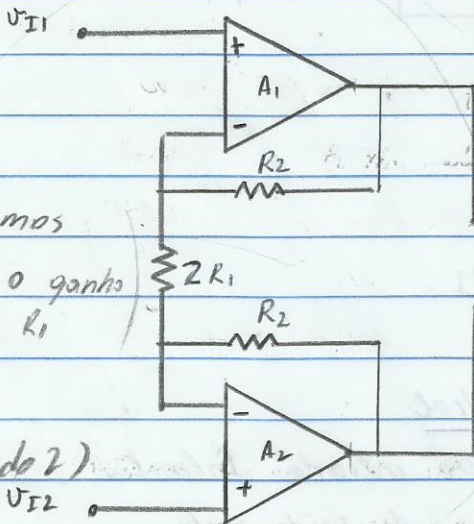 VI1
+
A1
-
R2
mos
o ganho
2R1
R1
R2
-
A2
do 2)
+
VI2